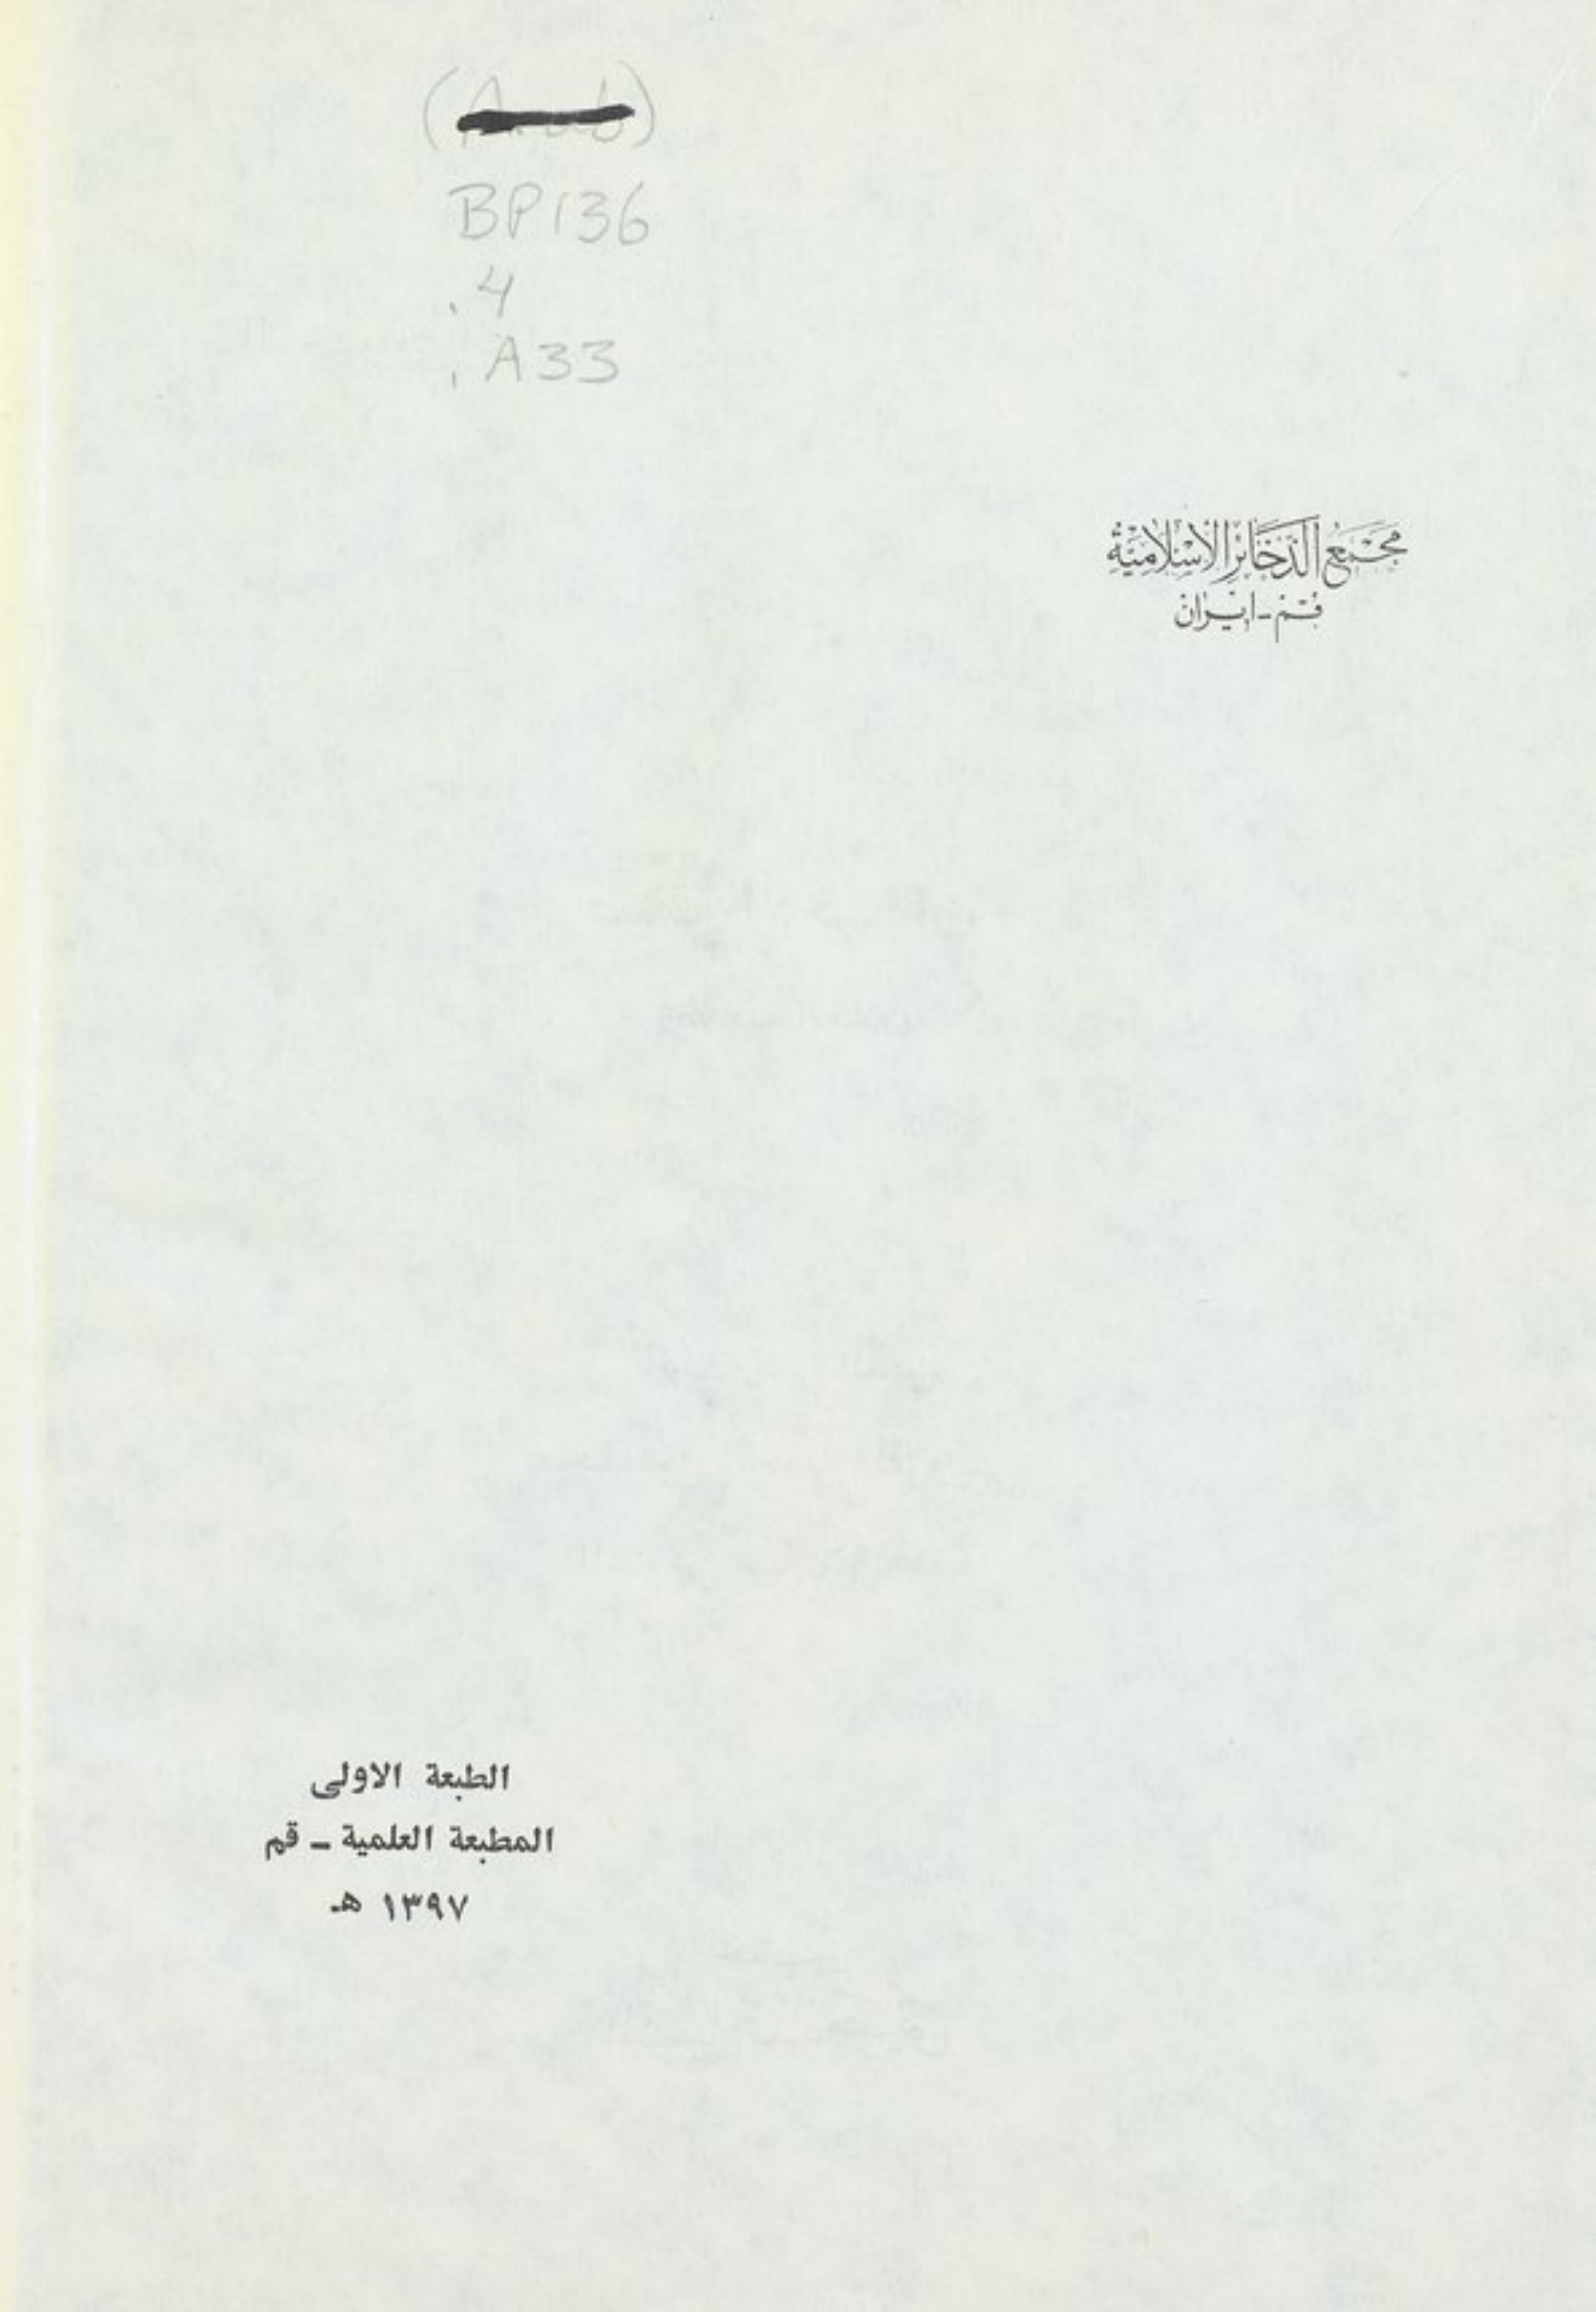 (Arab)
BP136
.4
.A33
مجمع الذخائر الاسلامية
قم - ايران
الطبعة الاولى
المطبعة العلمية ـ قم
١٣٩٧ هـ